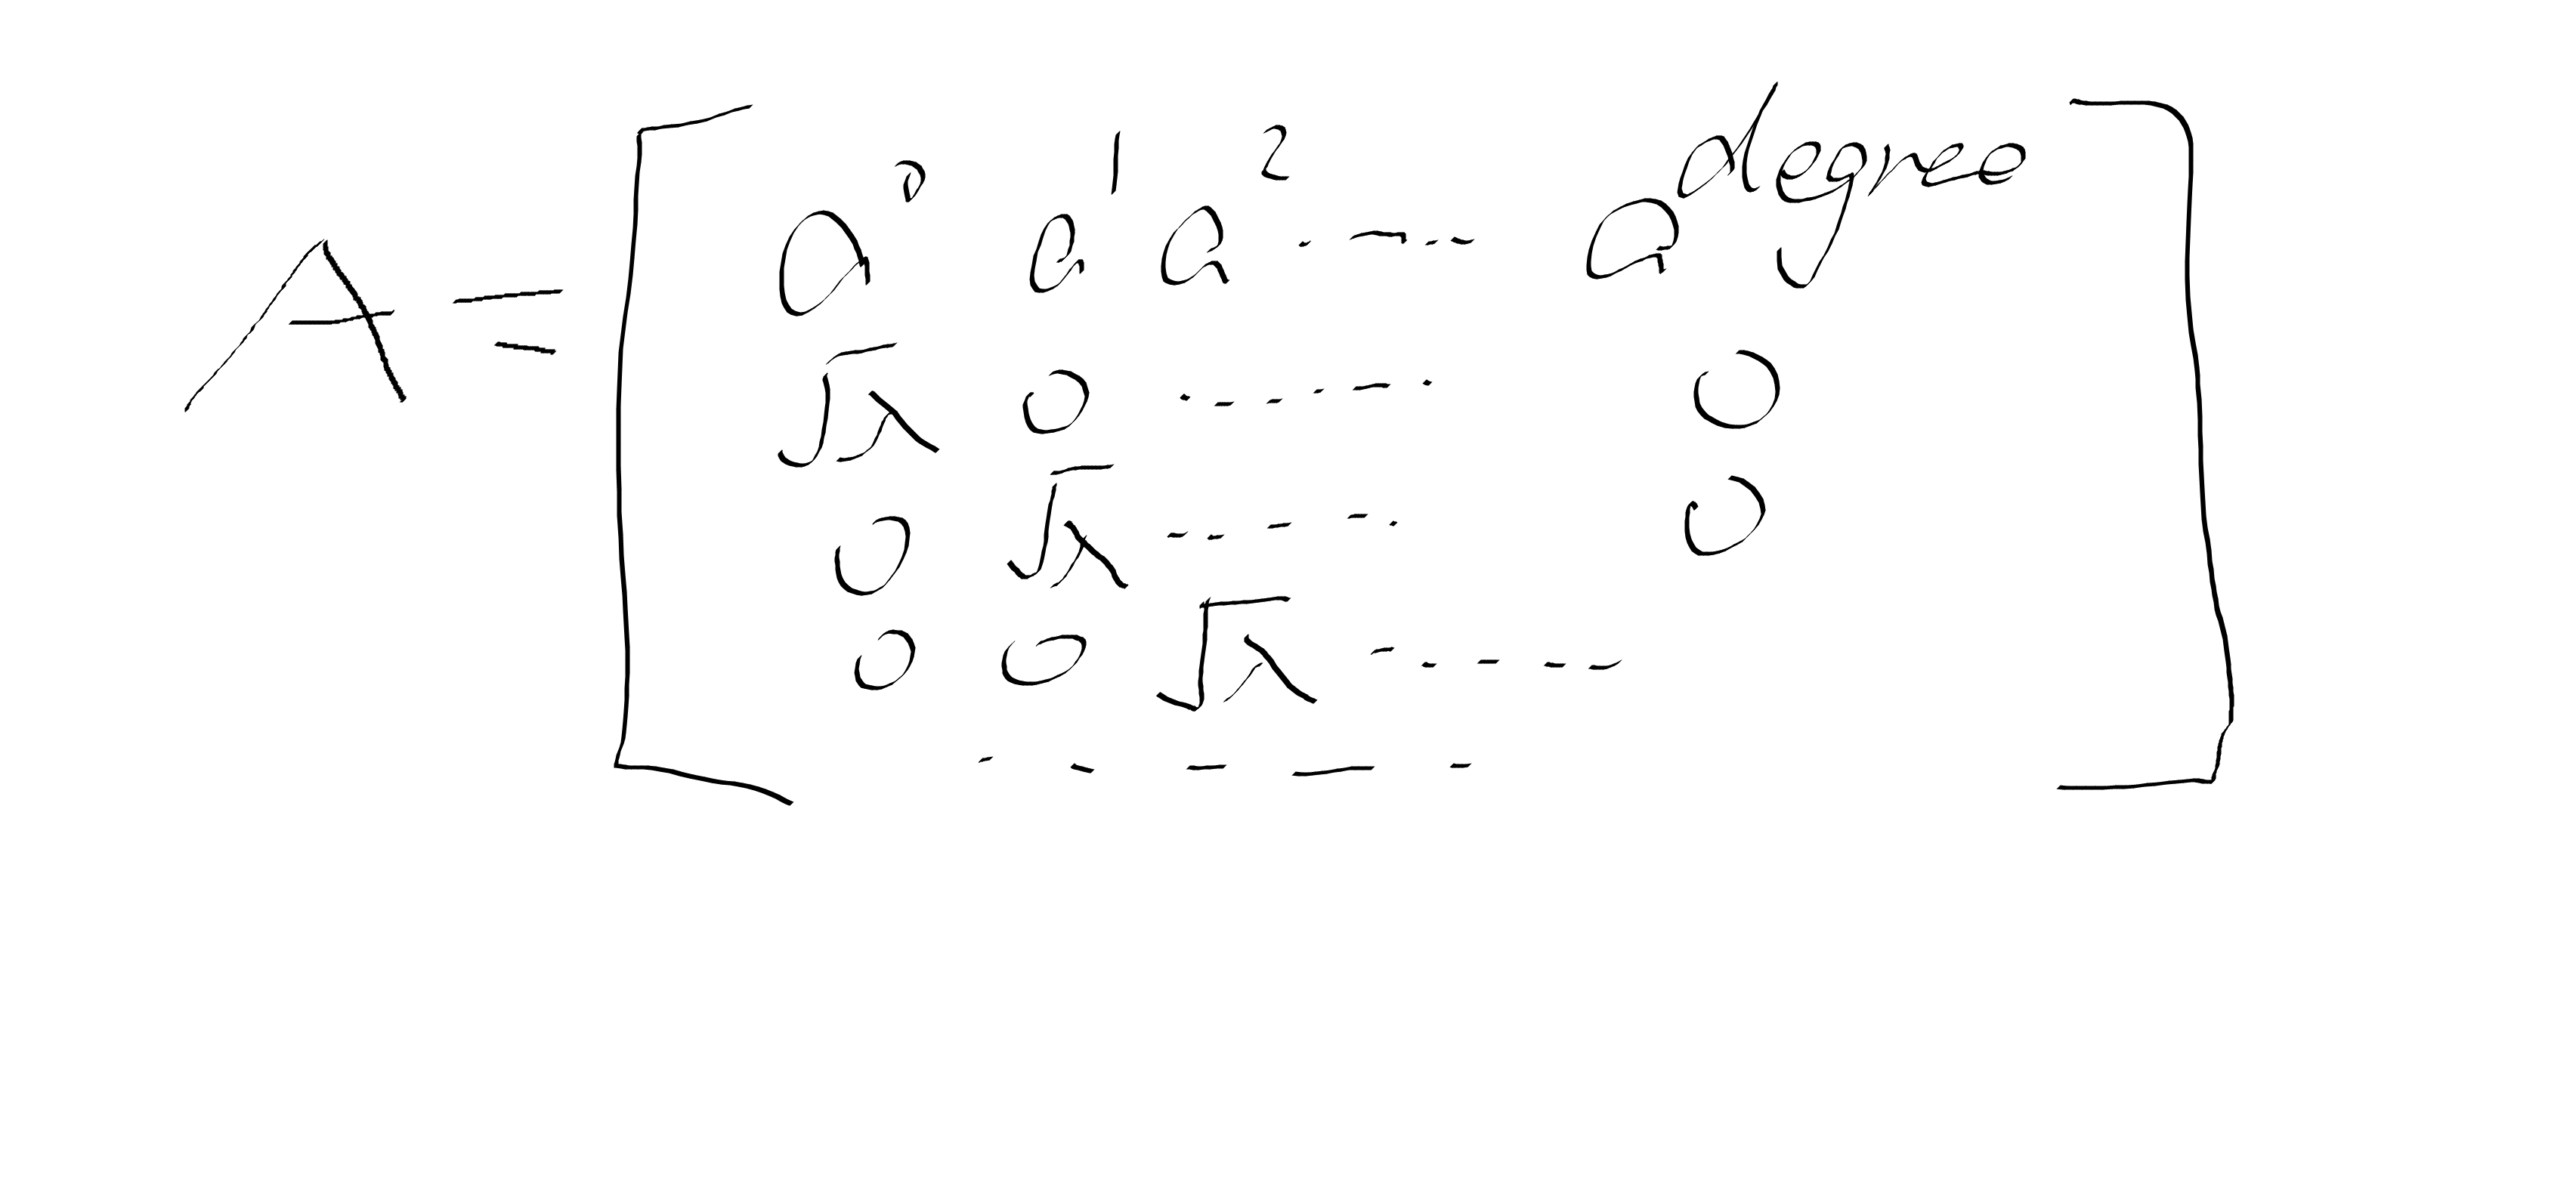 A = [ a^0 a^1 a^2 ...... a^degree
√λ 0 ...... 0
0 √λ ...... 0
0 0 √λ ......
...... ]